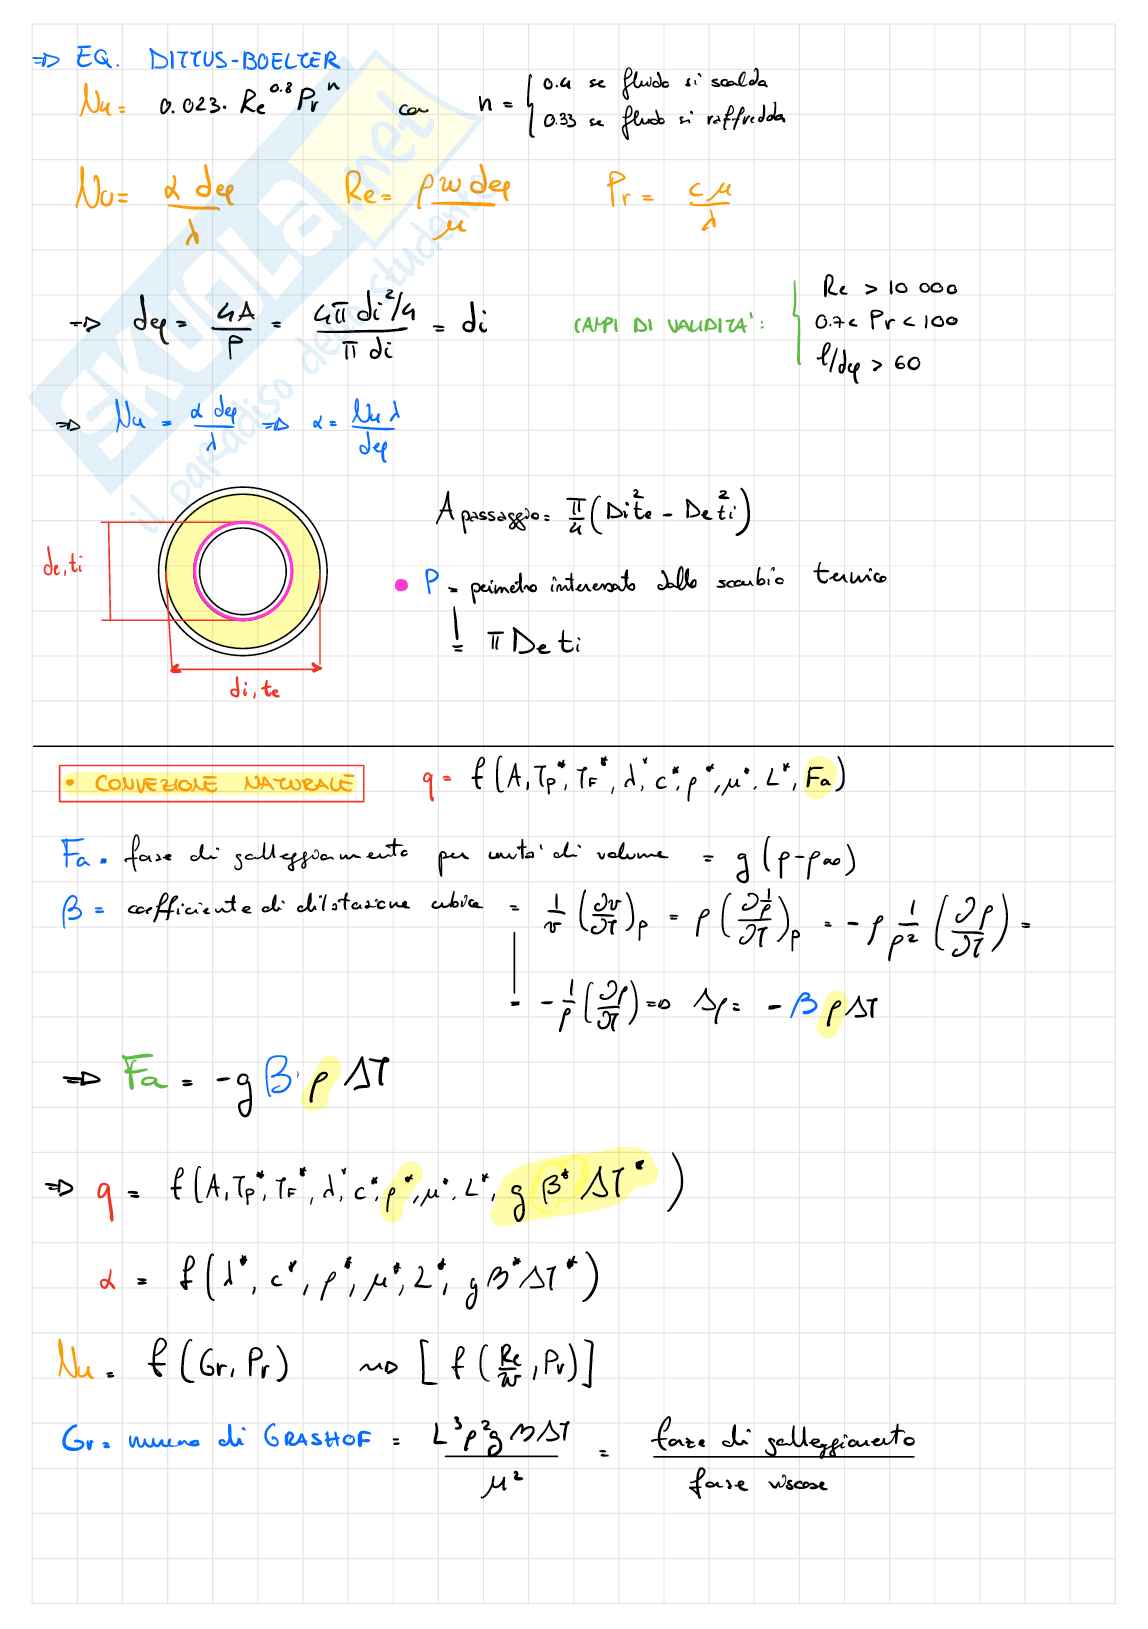 ⇒ EQ. DITTUS-BOELTER
Nu = 0.023 · Re^0.8 Pr^n con n = { 0.4 se fluido si scalda
0.33 se fluido si raffredda
Nu = α deq / λ Re = ρ w deq / μ Pr = c μ / λ
→ deq = 4A / P = 4π di²/4 / π di = di CAMPI DI VALIDITA': { Re > 10 000
0.7 < Pr < 100
l/deq > 60
⇒ Nu = α deq / λ ⇒ α = Nu λ / deq
A passaggio = π/4 (Di²te - De²ti)
de,ti
• P = perimetro interessato dallo scambio termico
= π De ti
di,te
• CONVEZIONE NATURALE q = f(A, Tp*, TF*, λ*, c*, ρ*, μ*, L*, Fa)
Fa = forze di galleggiamento per unita' di volume = g(ρ-ρ∞)
β = coefficiente di dilatazione cubica = 1/v (∂v/∂T)p = ρ (∂1/ρ / ∂T)p = -ρ 1/ρ² (∂ρ/∂T) =
= -1/ρ (∂ρ/∂T) ⇒ Δρ = -β ρ ΔT
⇒ Fa = -g β · ρ ΔT
⇒ q = f(A, Tp*, TF*, λ*, c*, ρ*, μ*, L*, g β* ΔT*)
α = f(λ*, c*, ρ*, μ*, L*, g β* ΔT*)
Nu = f(Gr, Pr) ⇝ [f(Re/w, Pr)]
Gr = numero di GRASHOF = L³ρ²g β ΔT / μ² = forze di galleggiamento / forze viscose
SKUOLA.net
il paradiso dello studente